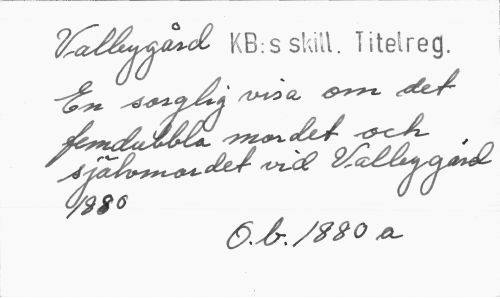 Valbygård KB:s skill. Titelreg.
En sorglig visa om det
femdubbla mordet och
självmordet vid Valbygård
1880
O.b. 1880 a